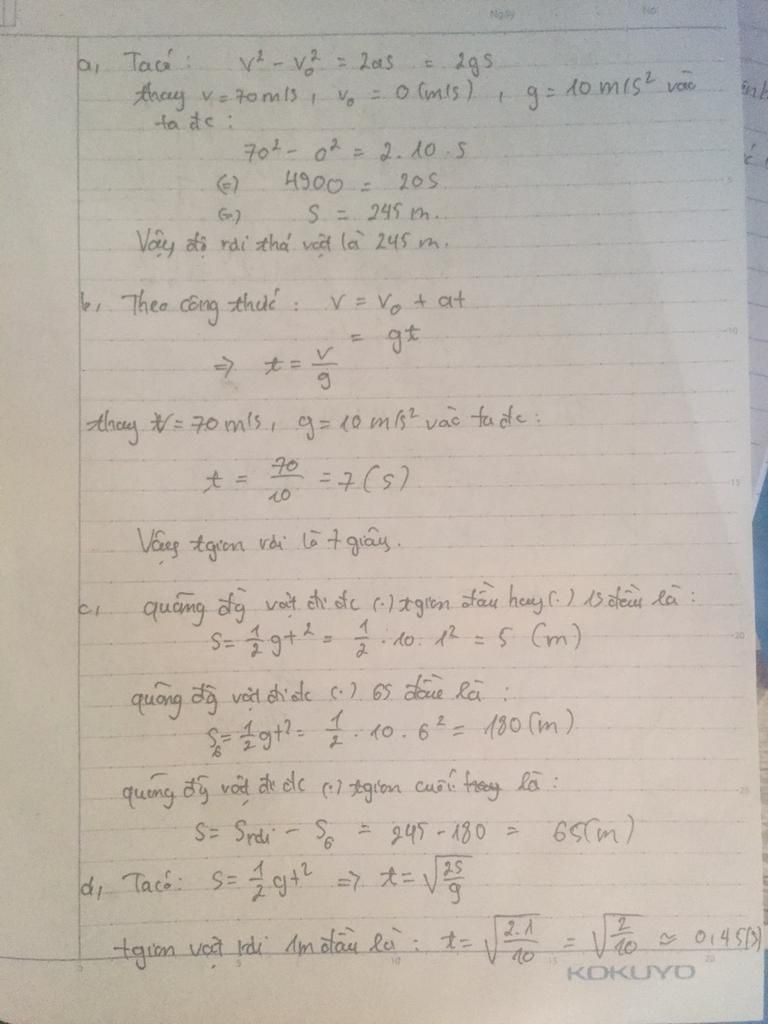 Ngày No.
a, Ta có: v² - v₀² = 2as = 2gs
thay v = 70 m/s, v₀ = 0 (m/s), g = 10 m/s² vào
ta đc:
70² - 0² = 2.10.s
(=) 4900 = 20s
(=) s = 245 m.
Vậy độ rơi thả vật là 245 m.
b, Theo công thức: v = v₀ + at
= gt
⇒ t = v/g
thay v = 70 m/s, g = 10 m/s² vào ta đc:
t = 70/10 = 7 (s)
Vậy tgian rơi là 7 giây.
c, quãng đg vật đi đc (.) tgian đầu hay (.) 1s đầu là:
s = 1/2 gt² = 1/2 . 10 . 1² = 5 (m)
quãng đg vật đi đc (.) 6s đầu là:
s₆ = 1/2 gt² = 1/2 . 10 . 6² = 180 (m)
quãng đg vật đi đc (.) tgian cuối hay là:
s = Srơi - S₆ = 245 - 180 = 65 (m)
d, Ta có: s = 1/2 gt² ⇒ t = √(2s/g)
tgian vật rơi 1m đầu là: t = √(2.1/10) = √(2/10) ≈ 0,45 (s)
KOKUYO